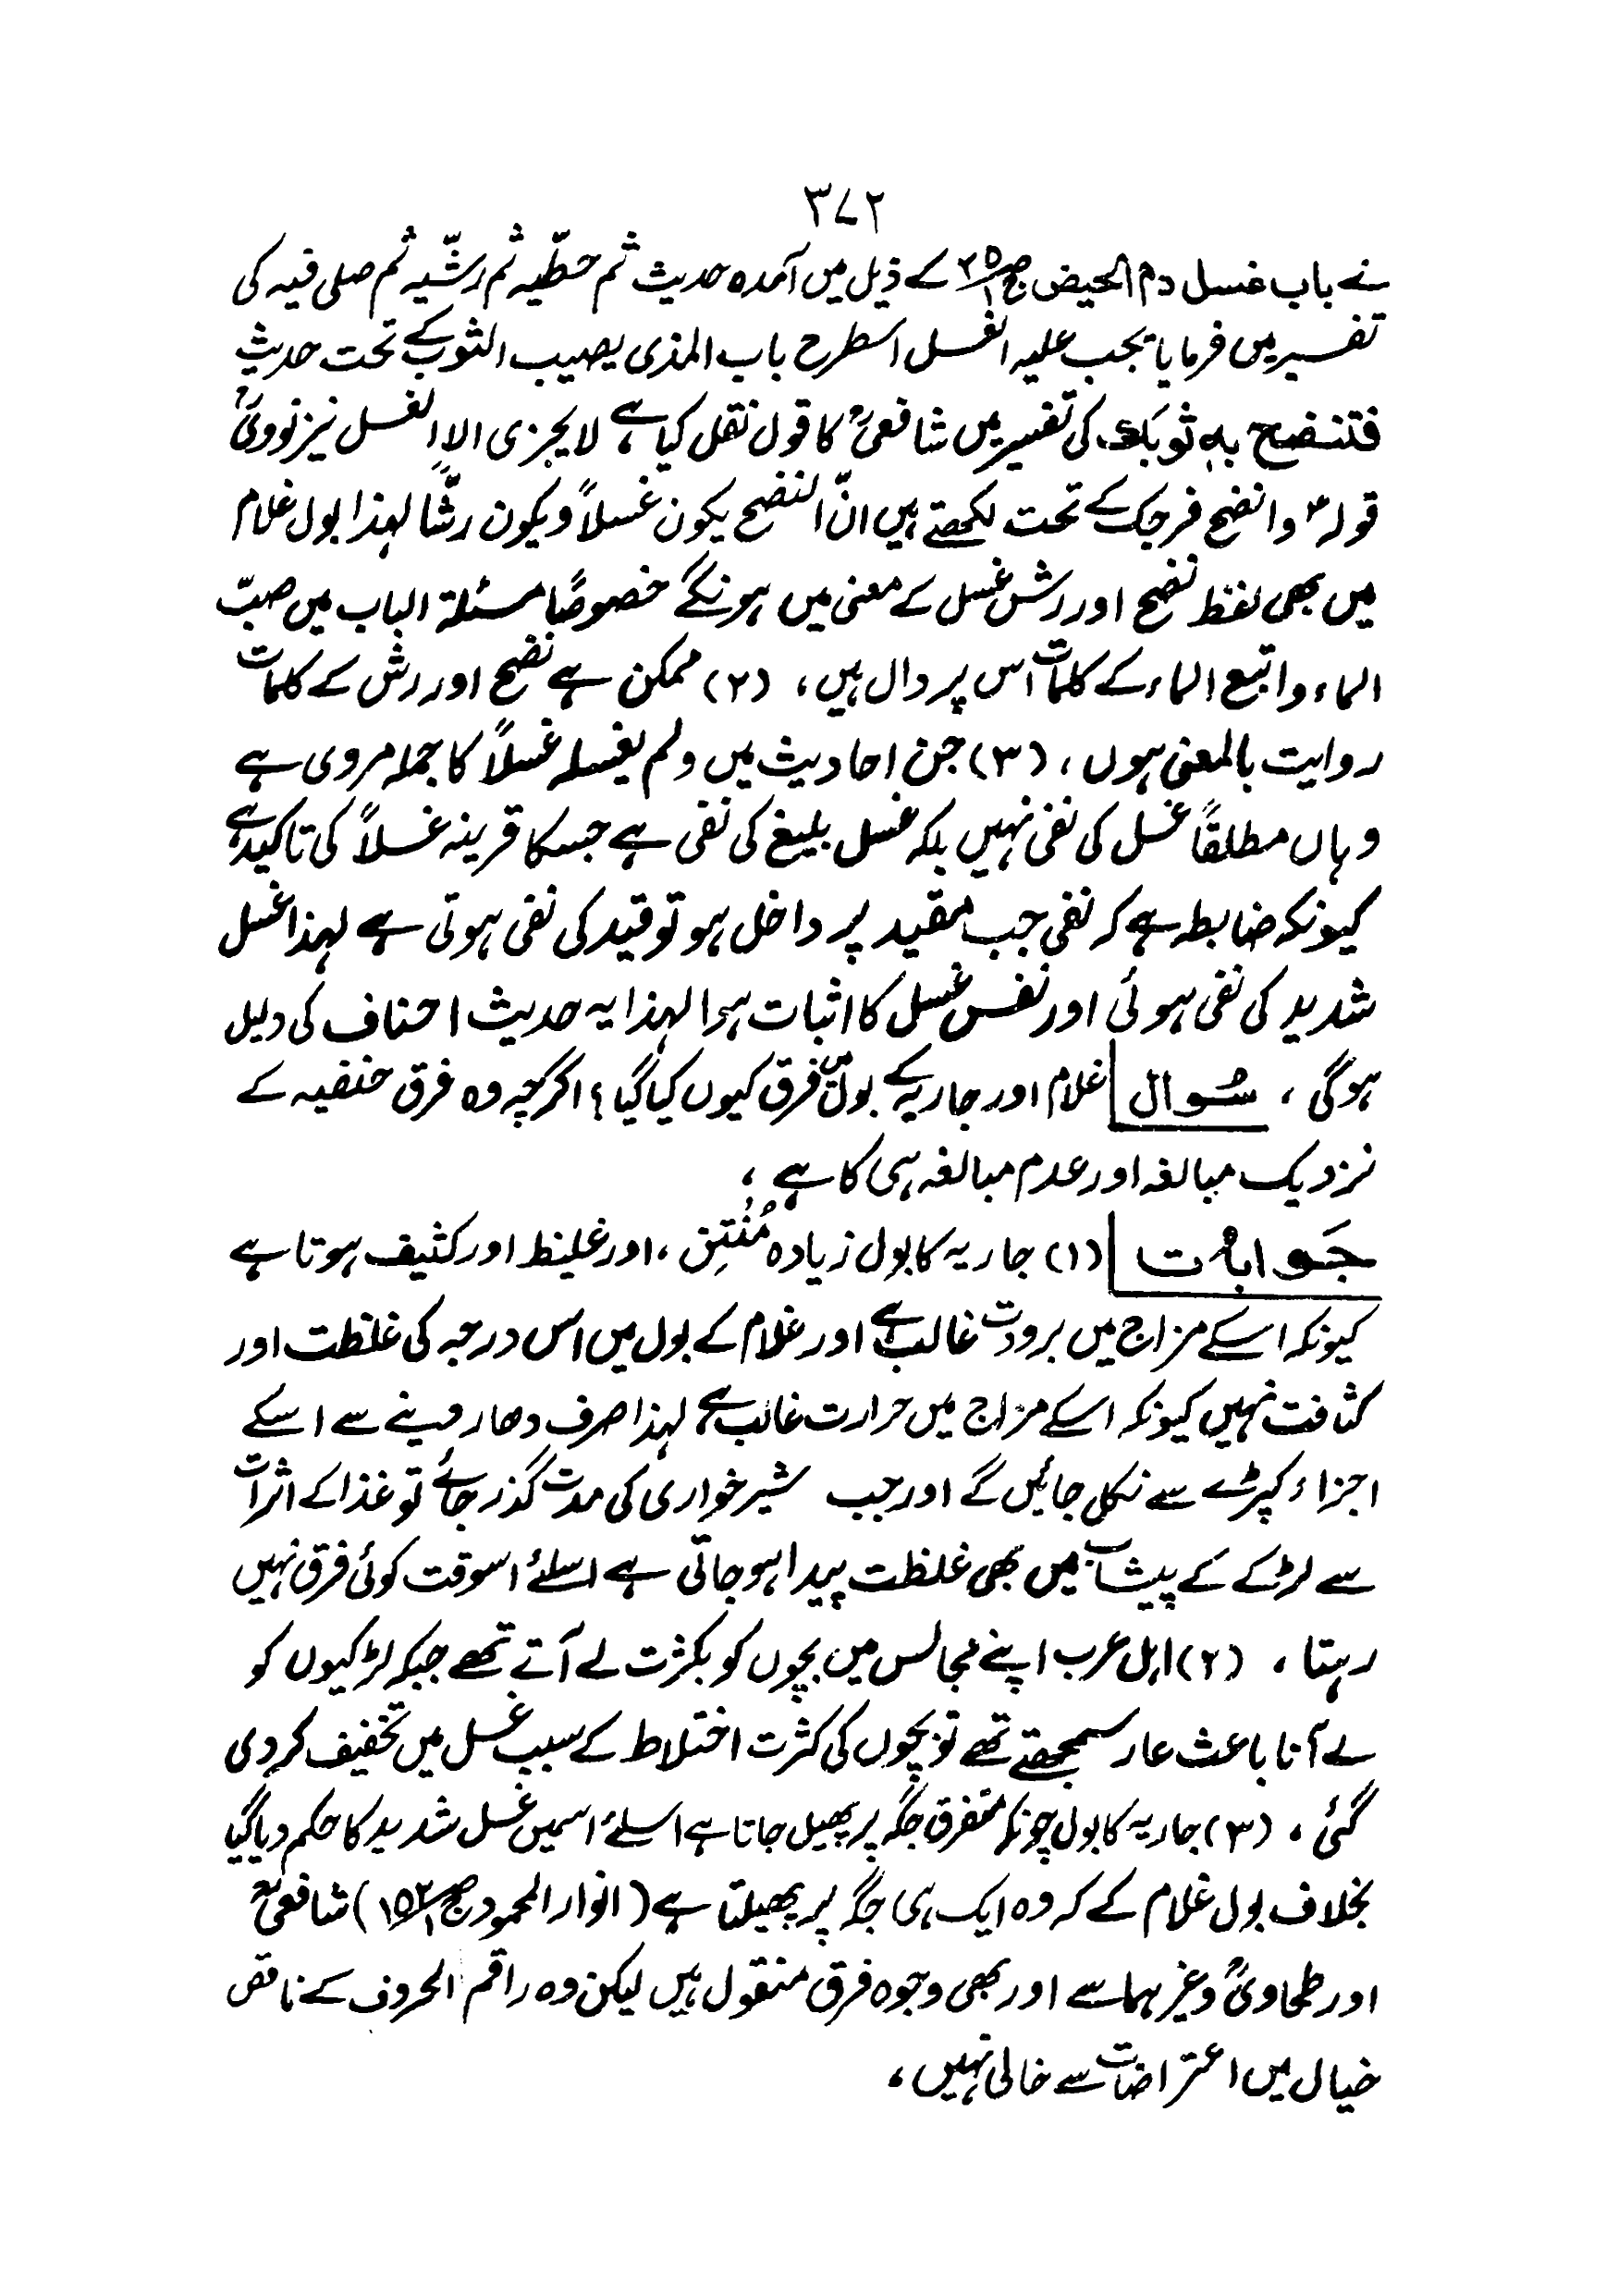 ۳۷۲
نے باب غسل دم الحیض ج۱ ص۳۵ کے ذیل میں آمدہ حدیث ثم حطّیہ ثم رشّیہ ثم صلی فیہ کی
تفسیر میں فرمایا یجب علیہ الغسل اسطرح باب المذی یصیب الثوب کے تحت حدیث
فتنضح بہٖ ثوبک کی تفسیر میں شافعیؒ کا قول نقل کیا ہے، لا یجزی الا الغسل نیز نوویؒ
قولہ۴ وانضح فرجک کے تحت لکھتے ہیں انّ النضح یکون غسلاً ویکون رشًّا لہٰذا بول غلام
میں بھی لفظ نضح اور رش غسل کے معنی میں ہونگے خصوصًا مسئلۃ الباب میں صبّ
الماء واتبع الماء کے کلمات اس پر دال ہیں، (۲) ممکن ہے نضح اور رش کے کلمات
روایت بالمعنی ہوں، (۳) جن احادیث میں ولم یغسلہ غسلاً کا جملہ مروی ہے
وہاں مطلقًا غسل کی نفی نہیں بلکہ غسل بلیغ کی نفی ہے جسکا قرینہ غسلاً کی تاکید ہے
کیونکہ ضابطہ ہے کہ نفی جب مقید پر داخل ہو تو قید کی نفی ہوتی ہے لہذا غسل
شدید کی نفی ہوئی اور نفس غسل کا اثبات ہوا لہذا یہ حدیث احناف کی دلیل
ہوگی، سُوال غلام اور جاریہ کے بول میں فرق کیوں کیا گیا؟ اگرچہ وہ فرق حنفیہ کے
نزدیک مبالغہ اور عدم مبالغہ ہی کا ہے،
جَوابات (۱) جاریہ کا بول زیادہ مُنْتِن، اور غلیظ اور کثیف ہوتا ہے
کیونکہ اسکے مزاج میں برودت غالب ہے اور غلام کے بول میں اس درجہ کی غلظت اور
کثافت نہیں کیونکہ اسکے مزاج میں حرارت غالب ہے لہذا صرف دھار دینے سے اسکے
اجزاء کپڑے سے نکل جائیں گے اور جب شیر خواری کی مدت گذر جائے تو غذا کے اثرات
سے لڑکے کے پیشاب میں بھی غلظت پیدا ہو جاتی ہے اسلئے اسوقت کوئی فرق نہیں
رہتا، (۲) اہل عرب اپنے مجالس میں بچوں کو بکثرت لے آتے تھے جبکہ لڑکیوں کو
لے آنا باعث عار سمجھتے تھے تو بچوں کی کثرت اختلاط کے سبب غسل میں تخفیف کر دی
گئی، (۳) جاریہ کا بول چونکہ متفرق جگہ پر پھیل جاتا ہے اسلئے اسمیں غسل شدید کا حکم دیا گیا
بخلاف بول غلام کے کہ وہ ایک ہی جگہ پر پھیلتا ہے (انوار المحمود ج۱ ص۱۵۲) شافعیؒ
اور طحاویؒ وغیرہما سے اور بھی وجوہ فرق منقول ہیں لیکن وہ راقم الحروف کے ناقص
خیال میں اعتراضات سے خالی نہیں،